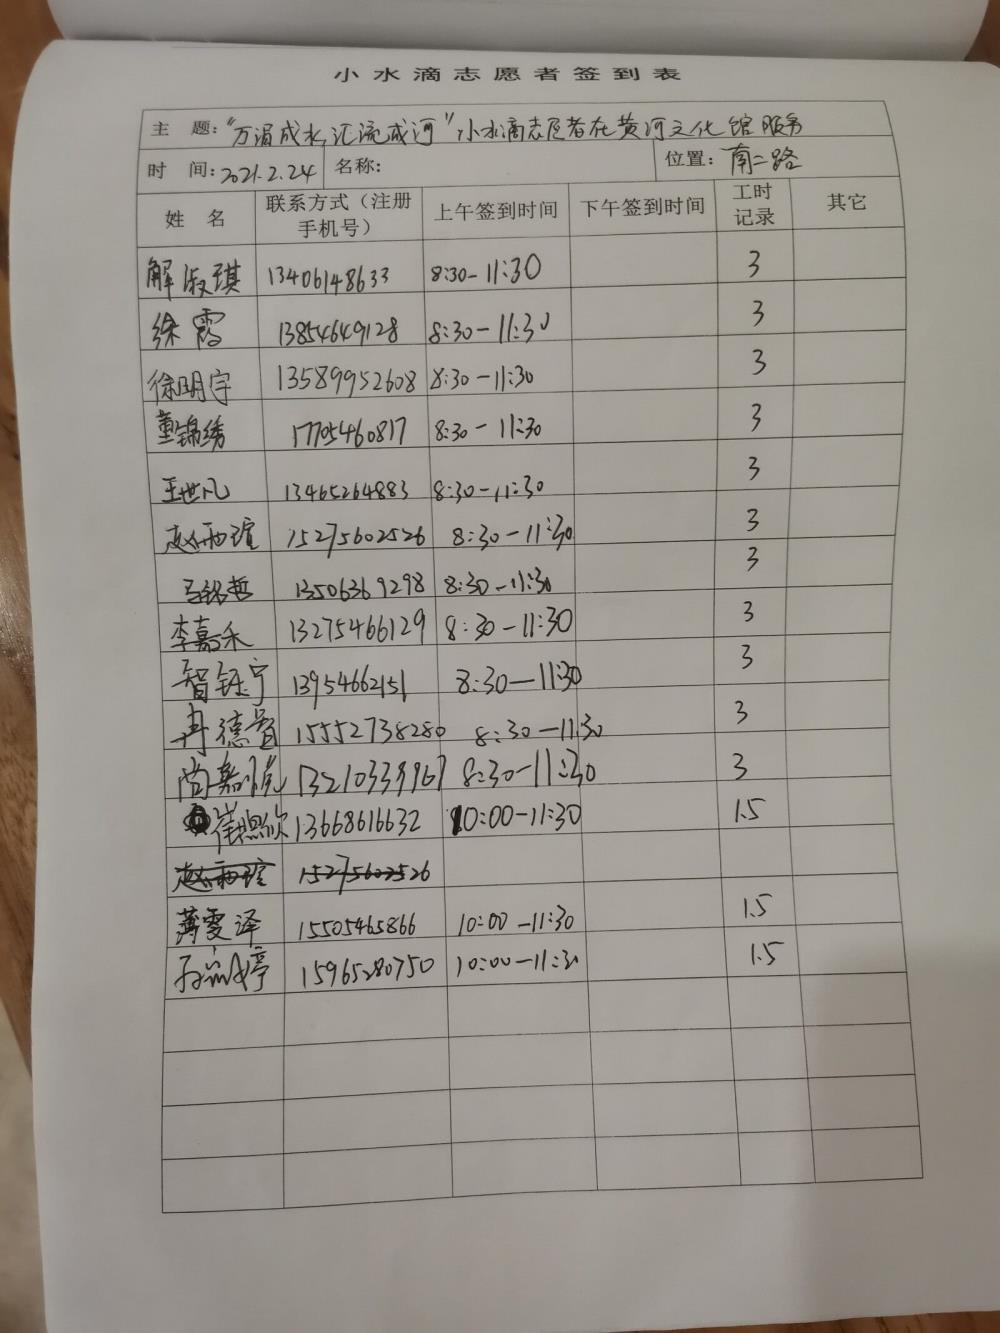 小水滴志愿者签到表
主 题："万涓成水,汇流成河"小水滴志愿者在黄河文化馆服务
时 间：2021.2.24 名称： 位置：南二路
姓 名 联系方式（注册手机号） 上午签到时间 下午签到时间 工时记录 其它
解淑琪 13406148633 8:30-11:30 3
徐霞 13854649128 8:30-11:30 3
徐明宇 13589952608 8:30-11:30 3
董锦绣 17705460817 8:30-11:30 3
王世凡 13465264883 8:30-11:30 3
赵雨瑄 15275602526 8:30-11:30 3
马铭哲 13506369298 8:30-11:30 3
李嘉禾 13275466129 8:30-11:30 3
智钰宁 13954662151 8:30-11:30 3
冉德智 15552738280 8:30-11:30 3
尚嘉 13210339967 8:30-11:30 3
崔 欣 13668616632 10:00-11:30 1.5
赵雨瑄 15275602526
薄雯泽 15505465866 10:00-11:30 1.5
婷 15965280750 10:00-11:30 1.5